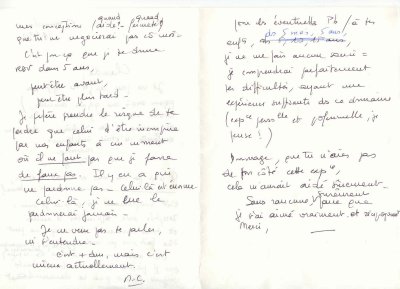 mes conception
que tu ne négocierai pas ce
C'est pour ça que je te donne
RDV dans 5 ans,
peut être avant,
peut être plus tard -
Je préfère prendre le risque de te
perdre que celui d'être incomprise
par mes enfants à un moment
où il ne faut pas que je fasse
de faux pas. Il y en a qui
ne pardonne pas - Celui là et comme
celui là, je ne me le
pardonnerai jamais -
Je ne veux pas te parler,
ni t'entendre -
C'est + dur, mais c'est
mieux actuellement.
pour les éventuelle Pb / à tes
enfts, des 5 mois, 5 ans,
je ne me fais aucun souci =
je comprendrai parfaitement
tes difficulté, ayant une
expérience suffisante de ce domaine
(cep° perso et professionnelle, je
pense !)
Dommage, que tu n'aies pas
de ton côté cette cep°,
cela m'aurait aidé sûrement -
Sans rancune, parce que
je t'ai aimé vraiment et
Merci,